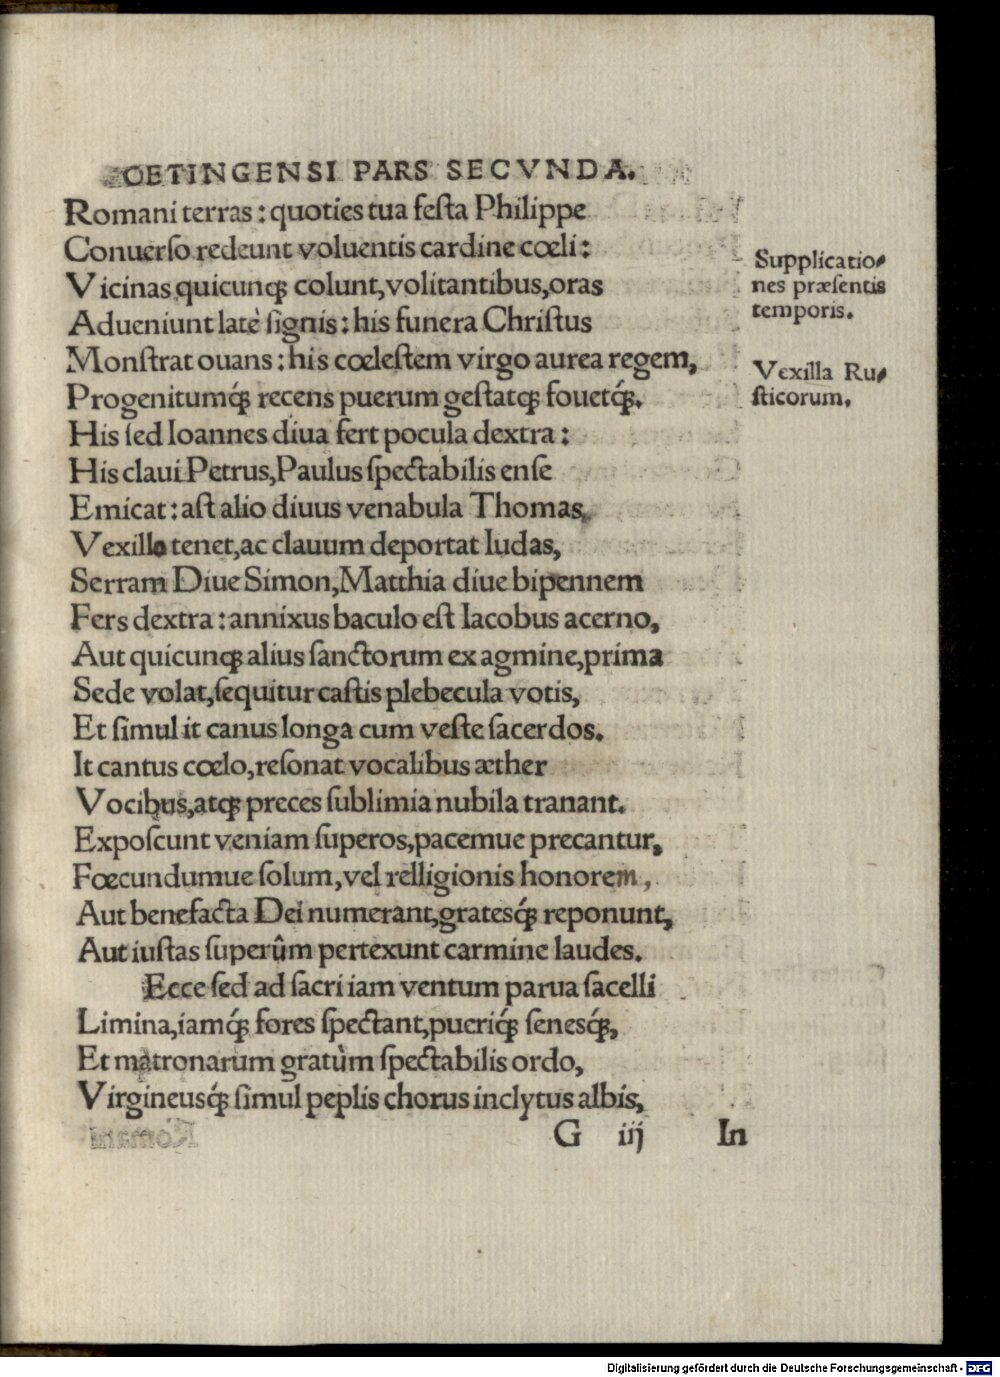 OETINGENSI PARS SECVNDA.
Romani terras: quoties tua feſta Philippe
Conuerſo redeunt voluentis cardine cœli:
Vicinas quicunqꝫ colunt, volitantibus, oras
Adueniunt latè ſignis: his funera Chriſtus
Monſtrat ouans: his cœleſtem virgo aurea regem,
Progenitumqꝫ́ recens puerum geſtatqꝫ fouetqꝫ́.
His ſed Ioannes diua fert pocula dextra:
His claui Petrus, Paulus ſpectabilis enſe
Emicat: aſt alio diuus venabula Thomas,
Vexillo tenet, ac clauum deportat Iudas,
Serram Diue Simon, Matthia diue bipennem
Fers dextra: annixus baculo eſt Iacobus acerno,
Aut quicunqꝫ alius ſanctorum ex agmine, prima
Sede volat, ſequitur caſtis plebecula votis,
Et ſimul it canus longa cum veſte ſacerdos.
It cantus cœlo, reſonat vocalibus æther
Vocibus, atqꝫ preces ſublimia nubila tranant.
Expoſcunt veniam ſuperos, pacemue precantur,
Fœcundumue ſolum, vel relligionis honorem,
Aut benefacta Dei numerant, gratesqꝫ́ reponunt,
Aut iuſtas ſuperûm pertexunt carmine laudes.
Ecce ſed ad ſacri iam ventum parua ſacelli
Limina, iamqꝫ́ fores ſpectant, pueriqꝫ́ ſenesqꝫ́,
Et matronarum gratùm ſpectabilis ordo,
Virgineusqꝫ́ ſimul peplis chorus inclytus albis,
G iij In
Supplicatio⸗
nes præſentis
temporis.
Vexilla Ru⸗
ſticorum.
Digitalisierung gefördert durch die Deutsche Forschungsgemeinschaft - DFG